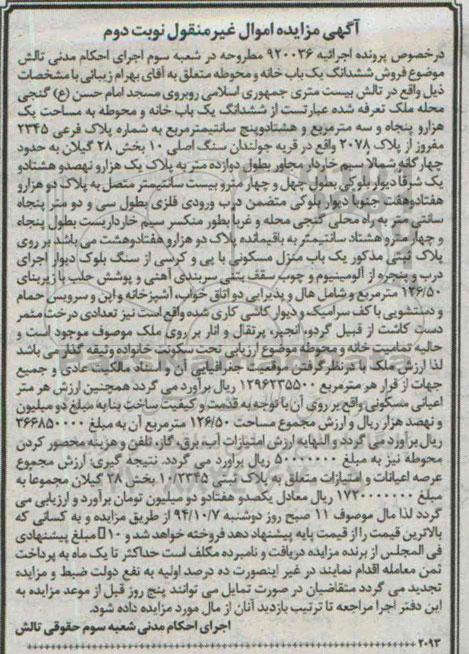 آگهی مزایده اموال غیرمنقول نوبت دوم
درخصوص پرونده اجرائیه ۹۲۰۰۳۶ مطروحه در شعبه سوم اجرای احکام مدنی تالش
موضوع فروش ششدانگ یک باب خانه و محوطه متعلق به آقای بهرام زیبائی با مشخصات
ذیل واقع در تالش بیست متری جمهوری اسلامی روبروی مسجد امام حسن (ع) گنجی
محله ملک تعرفه شده عبارتست از ششدانگ یک باب خانه و محوطه به مساحت یک
هزارو پنجاه و سه مترمربع و هشتادوپنج سانتیمترمربع به شماره پلاک فرعی ۲۳۴۵
مفروز از پلاک ۲۰۷۸ واقع در قریه جولندان سنگ اصلی ۱۰ بخش ۲۸ گیلان به حدود
چهارگانه شمالا سیم خاردار مجاور بطول دوازده متر به پلاک یک هزارو نهصدو هشتادو
یک شرقا دیوار بلوکی بطول چهل و چهار مترو بیست سانتیمتر متصل به پلاک دو هزارو
هفتادوهفت جنوبا دیوار بلوکی متضمن درب ورودی فلزی بطول سی و دو متر پنجاه
سانتی متر به راه محلی گنجی محله و غربا بطور منکسر سیم خارداریست بطول پنجاه
و چهار مترو هشتاد سانتیمتر به باقیمانده پلاک دو هزارو هفتادوهشت می باشد بر روی
پلاک ثبتی مذکور یک باب منزل مسکونی با پی و کرسی از سنگ بلوک دیوار اجرای
درب و پنجره از آلومینیوم و چوب سقف بتنی سربندی آهنی و پوشش حلب با زیربنای
۱۲۶/۵۰ مترمربع و شامل هال و پذیرایی دو اتاق خواب، آشپزخانه و اپن و سرویس حمام
و دستشویی با کف سرامیک و دیوار کاشی کاری شده واقع است نیز تعدادی درخت مثمر
دست کاشت از قبیل گردو، انجیر، پرتقال و انار بر روی ملک موصوف موجود است و
حالیه تمامیت خانه و محوطه موضوع ارزیابی تحت سکونت خانواده وثیقه گذار می باشد
لذا ارزش ملک با در نظر گرفتن موقعیت جغرافیایی آن و اسناد مالکیت عادی و جمیع
جهات از قرار هر مترمربع ۱۲۹۶۲۳۵۵۰۰ ریال برآورد می گردد همچنین ارزش هر متر
اعیانی مسکونی واقع بر روی آن با توجه به قدمت و کیفیت ساخت بنا به مبلغ دو میلیون
و نهصد هزار ریال و ارزش مجموع مساحت ۱۲۶/۵۰ مترمربع آن به مبلغ ۳۶۶۸۵۰۰۰۰
ریال برآورد می گردد و النهایه ارزش امتیازات آب، برق، گاز، تلفن و هزینه محصور کردن
محوطه نیز به مبلغ ۵۰۰۰۰۰۰۰ ریال برآورد می گردد. نتیجه گیری: ارزش مجموع
عرصه اعیانات و امتیازات متعلق به پلاک ثبتی ۱۰/۲۳۴۵ بخش ۲۸ گیلان مجموعا به
مبلغ ۱۷۲۰۰۰۰۰۰۰ ریال معادل یکصدو هفتادو دو میلیون تومان برآورد و ارزیابی می
گردد لذا مال موصوف ۱۱ صبح روز دوشنبه ۹۴/۱۰/۷ از طریق مزایده و به کسانی که
بالاترین قیمت را از قیمت پایه پیشنهاد دهد فروخته خواهد شد و ۱۰ مبلغ پیشنهادی
فی المجلس از برنده مزایده دریافت و نامبرده مکلف است حداکثر تا یک ماه به پرداخت
ثمن معامله اقدام نمایند در غیر اینصورت ده درصد اولیه به نفع دولت ضبط و مزایده
تجدید می گردد متقاضیان در صورت تمایل می توانند پنج روز قبل از موعد مزایده به
این دفتر اجرا مراجعه تا ترتیب بازدید آنان از مال مورد مزایده داده شود.
اجرای احکام مدنی شعبه سوم حقوقی تالش
۲۰۹۳